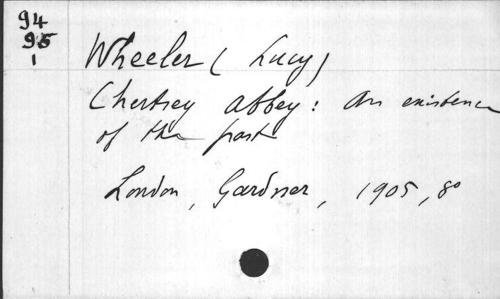 94
95
1
Wheeler (Lucy)
Chertsey abbey: An existence
of the past
London, Gardner, 1905, 8°